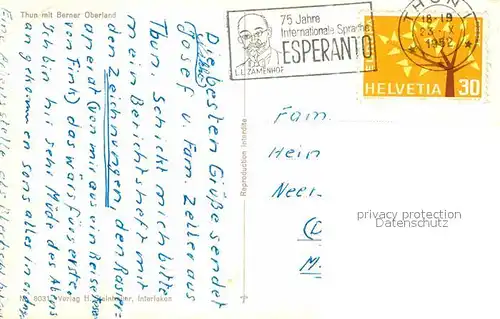 Thun mit Berner Oberland
75 Jahre
Internationale Sprache
ESPERANTO
L.L. ZAMENHOF
THUN 1
18-19
23. X
1962
HELVETIA
30
Die besten Grüße sendet
Josef u. Fam. Zeller aus
Thun. Schickt mich bitte
mein Berichtsheft mit
den Zeichnungen, den Rasier-
aperat (von mir aus ein Reise
von Fink) das wärs fürs erste.
Ich bin hir sehr Müde des Abens
angekommen sons alles in
Fam.
Hein
Neer
(D
M.
privacy protection
Datenschutz
Reproduction interdite
Verlag H. Steinhauer, Interlaken